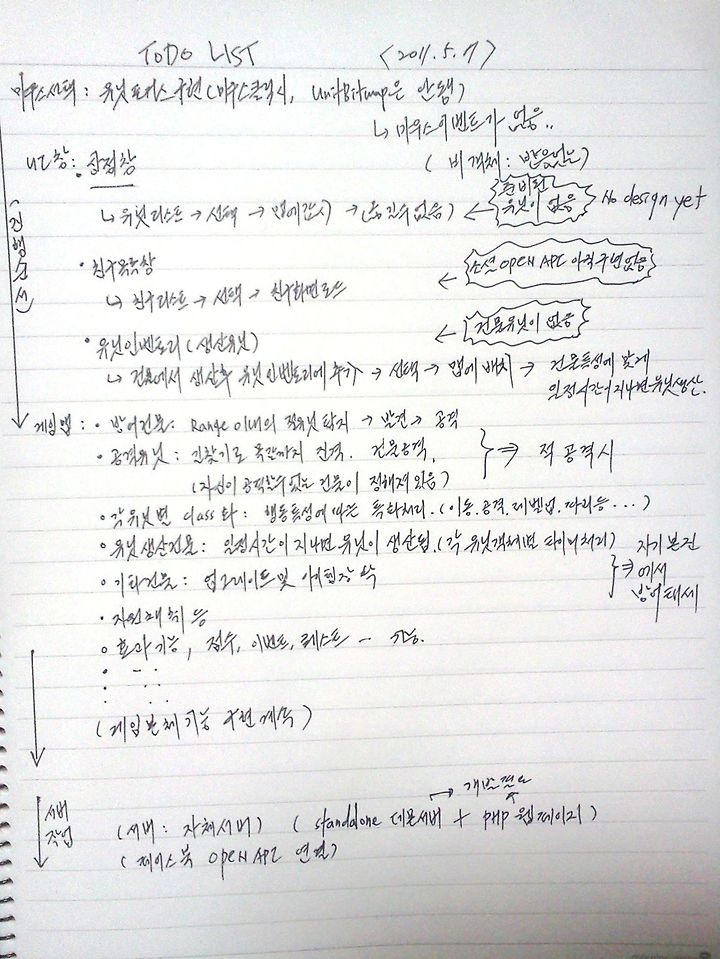 TODO LIST <2011.5.7>
마우스선택: 유닛포커스구현(마우스클릭시, UnitBitmap은 안됨)
↳ 마우스이벤트가 없음..
(비객체: 반응없는)
UI창: • 상점창
↳ 유닛리스트 → 선택 → 맵에감시 → (움직수없음) ← 준비된 유닛이 없음 No design yet
(진행순서)
• 친구목록창
↳ 친구리스트 → 선택 → 친구화면로드 ← 소셜 OPEN API 아직구현없음
• 유닛인벤토리(생산유닛) ← 건물유닛이 없음
↳ 건물에서 생산후 유닛인벤토리에추가 → 선택 → 맵에 배치 → 건물특성에 맞게
일정시간이지나면유닛생산.
게임맵: • 방어건물: Range 이내의 적유닛 탐지 → 발견 → 공격
• 공격유닛: 길찾기로 목표까지 진격. 건물공격. ⇒ 적 공격시
(자신이 공격할수없는 건물이 정해져있음)
• 각유닛별 class화: 행동특성에 따른 특화처리.(이동.공격.레벨업.따라등...)
• 유닛생산건물: 일정시간이지나면유닛이 생산됨.(각 유닛객체별 타이머처리)
⇒ 자기본진
에서
방어태세
• 기타건물: 업그레이드 및 아이템장착
• 자원채취 등
• 효과기능, 점수, 이벤트, 퀘스트 — 기능.
(게임본체기능 구현계속)
→ 개발필요
서버
작업
(서버: 자체서버) (standalone 데몬서버 + php 웹페이지)
(페이스북 OPEN API 연결)